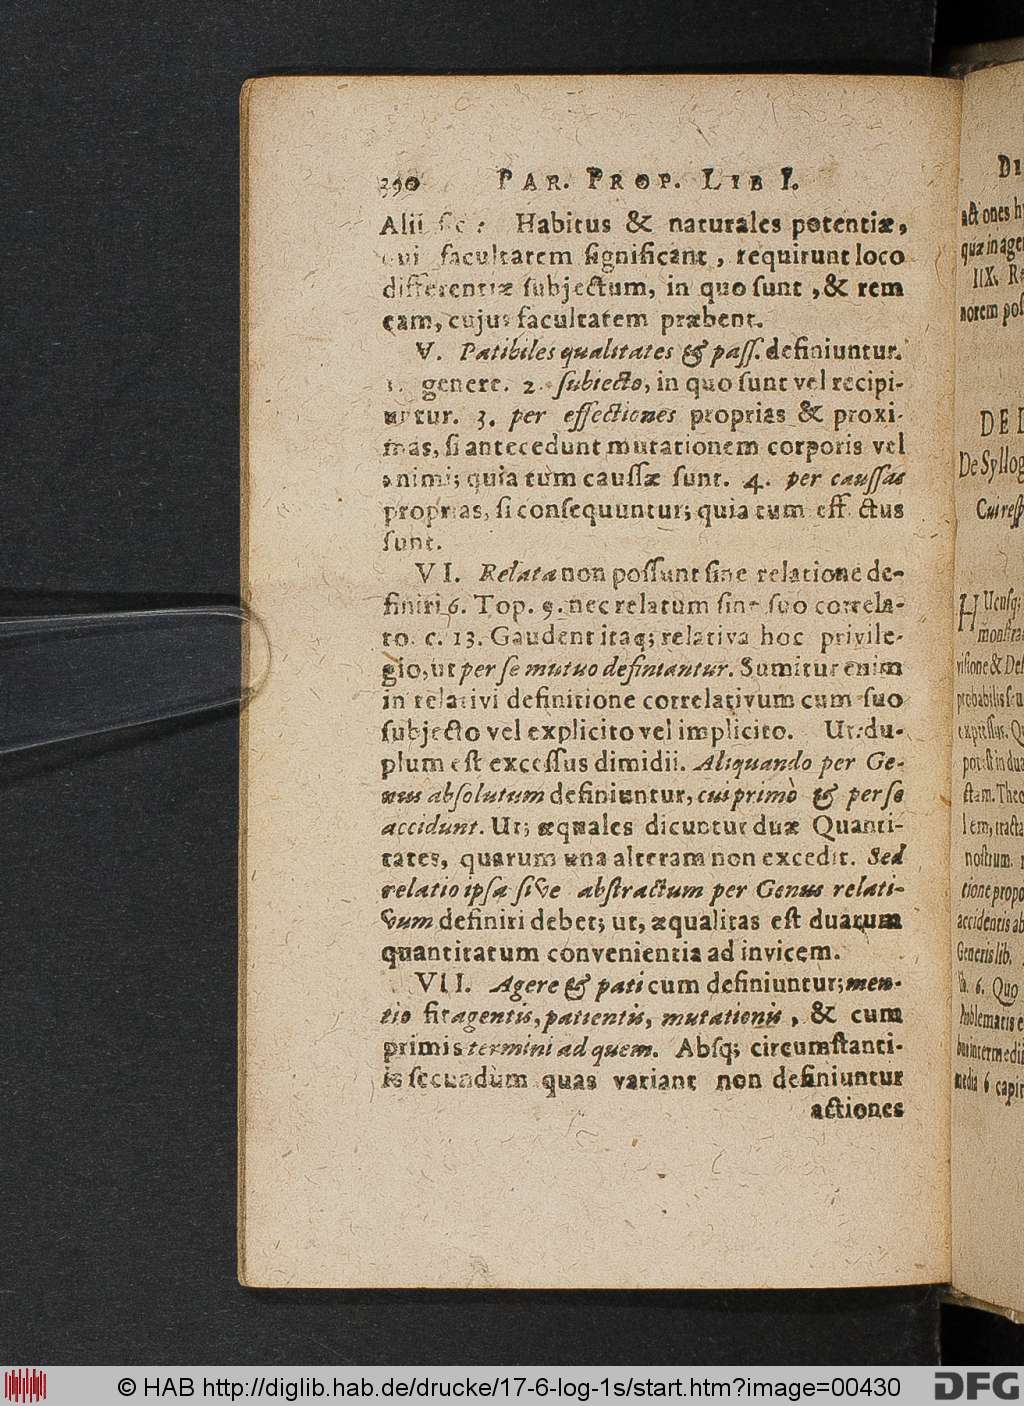 390 PAR. PROP. LIB I.
Alii sic: Habitus & naturales potentiæ,
qui facultatem significant, requirunt loco
differentiæ subjectum, in quo sunt, & rem
eam, cujus facultatem præbent.
V. Patibiles qualitates & pass. definiuntur.
1. genere. 2. subiecto, in quo sunt vel recipi-
untur. 3. per effectiones proprias & proxi-
mas, si antecedunt mutationem corporis vel
animi; quia tum caussæ sunt. 4. per caussas
proprias, si consequuntur; quia tum effectus
sunt.
VI. Relata non possunt sine relatione de-
finiri 6. Top. 9. nec relatum sine suo correla-
to. c. 13. Gaudent itaq; relativa hoc privile-
gio, ut per se mutuo definiantur. Sumitur enim
in relativi definitione correlativum cum suo
subjecto vel explicito vel implicito. Ut: du-
plum est excessus dimidii. Aliquando per Ge-
nus absolutum definiuntur, cui primò & per se
accidunt. Ut; æquales dicuntur duæ Quanti-
tates, quarum una alteram non excedit. Sed
relatio ipsa sive abstractum per Genus relati-
vum definiri debet; ut, æqualitas est duarum
quantitatum convenientia ad invicem.
VII. Agere & pati cum definiuntur; men-
tio fit agentis, patientis, mutationis, & cum
primis termini ad quem. Absq; circumstanti-
is secundum quas variant non definiuntur
actiones
DI
actiones h
quæ in age
IIX. Re
norem pos
DE
De Syllog
Cui resp
HUcusq;
monstra
visione & De
probabilis seu
expressus. Q
potest in dua
stam. Theo
lem, tracta
nostrum.
tione propo
accidentis ab
Generis lib.
lib. 6. Quo
Problematis e
bus intermedii
media 6 capit
© HAB http://diglib.hab.de/drucke/17-6-log-1s/start.htm?image=00430
DFG